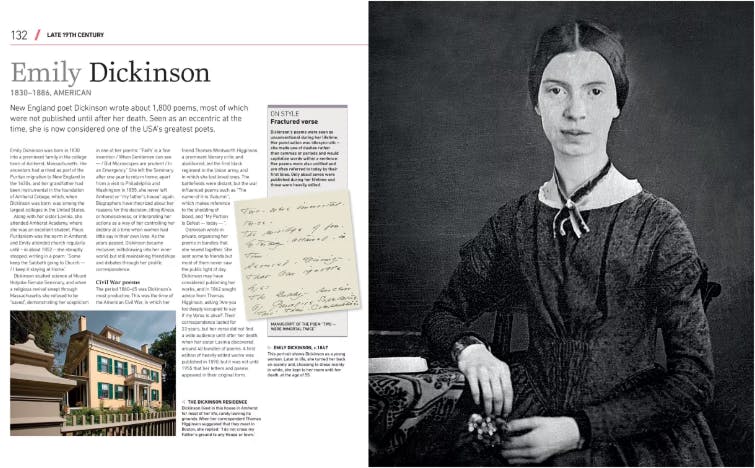 132 / LATE 19TH CENTURY
Emily Dickinson
1830–1886, AMERICAN
New England poet Dickinson wrote about 1,800 poems, most of which
were not published until after her death. Seen as an eccentric at the
time, she is now considered one of the USA's greatest poets.
Emily Dickinson was born in 1830
into a prominent family in the college
town of Amherst, Massachusetts. Her
ancestors had arrived as part of the
Puritan migration to New England in
the 1630s, and her grandfather had
been instrumental in the foundation
of Amherst College, which, when
Dickinson was born, was among the
largest colleges in the United States.
Along with her sister Lavinia, she
attended Amherst Academy, where
she was an excellent student. Pious
Puritanism was the norm in Amherst,
and Emily attended church regularly
until – in about 1852 – she abruptly
stopped, writing in a poem: "Some
keep the Sabbath going to Church —
/ I keep it staying at home".
Dickinson studied science at Mount
Holyoke Female Seminary, and when
a religious revival swept through
Massachusetts she refused to be
"saved", demonstrating her scepticism
in one of her poems: "'Faith' is a fine
invention / When Gentlemen can see
— / But Microscopes are prudent / In
an Emergency." She left the Seminary
after one year to return home; apart
from a visit to Philadelphia and
Washington in 1855, she never left
Amherst or "my father's house" again.
Biographers have theorized about her
reasons for this decision, citing illness
or homesickness, or interpreting her
actions as a way of controlling her
destiny at a time when women had
little say in their own lives. As the
years passed, Dickinson became
reclusive, withdrawing into her inner
world, but still maintaining friendships
and debates through her prolific
correspondence.
Civil War poems
The period 1860–65 was Dickinson's
most productive. This was the time of
the American Civil War, in which her
friend Thomas Wentworth Higginson,
a prominent literary critic and
abolitionist, led the first black
regiment in the Union army, and
in which she lost loved ones. The
battlefields were distant, but the war
influenced poems such as "The
name of it is 'Autumn'",
which makes reference
to the shedding of
blood, and "My Portion
is Defeat — today —".
Dickinson wrote in
private, organizing her
poems in bundles that
she sewed together. She
sent some to friends but
most of them never saw
the public light of day.
Dickinson may have
considered publishing her
works, and in 1862 sought
advice from Thomas
Higginson, asking "Are you
too deeply occupied to say
if my Verse is alive?". Their
correspondence lasted for
20 years, but her verse did not find
a wide audience until after her death,
when her sister Lavinia discovered
around 40 bundles of poems. A first
edition of heavily edited works was
published in 1890, but it was not until
1955 that her letters and poems
appeared in their original form.
ON STYLE
Fractured verse
Dickinson's poems were seen as
unconventional during her lifetime.
Her punctuation was idiosyncratic –
she made use of dashes rather
than commas or periods and would
capitalize words within a sentence.
Her poems were also untitled and
are often referred to today by their
first lines. Only about seven were
published during her lifetime and
these were heavily edited.
MANUSCRIPT OF THE POEM "TWO –
WERE IMMORTAL TWICE"
▷ EMILY DICKINSON, c.1847
This portrait shows Dickinson as a young
woman. Later in life, she turned her back
on society and, choosing to dress mainly
in white, she kept to her room until her
death, at the age of 55.
◁ THE DICKINSON RESIDENCE
Dickinson lived in this house in Amherst
for most of her life, rarely leaving its
grounds. When her correspondent Thomas
Higginson suggested that they meet in
Boston, she replied: "I do not cross my
Father's ground to any House or town."